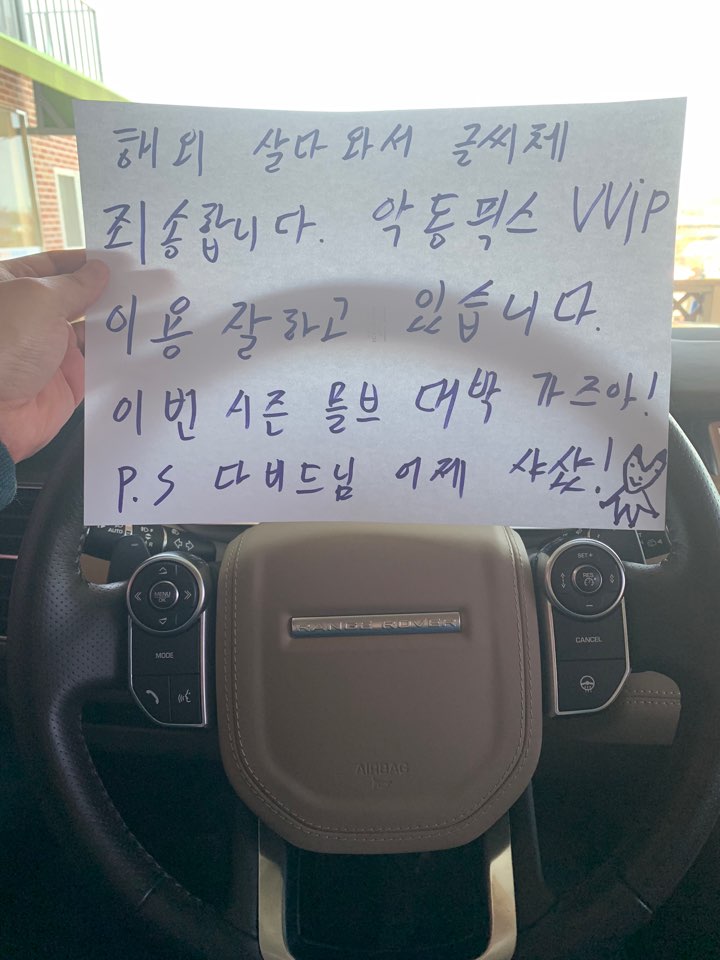 해외 살다 와서 글씨체
죄송합니다. 악동픽스 VVIP
이용 잘하고 있습니다.
이번 시즌 믈브 대박 가즈아!
P.S 다비드님 어제 샤샀!
AUTO
MENU
OK
MODE
SET+
RES
CANCEL
RANGE ROVER
AIRBAG